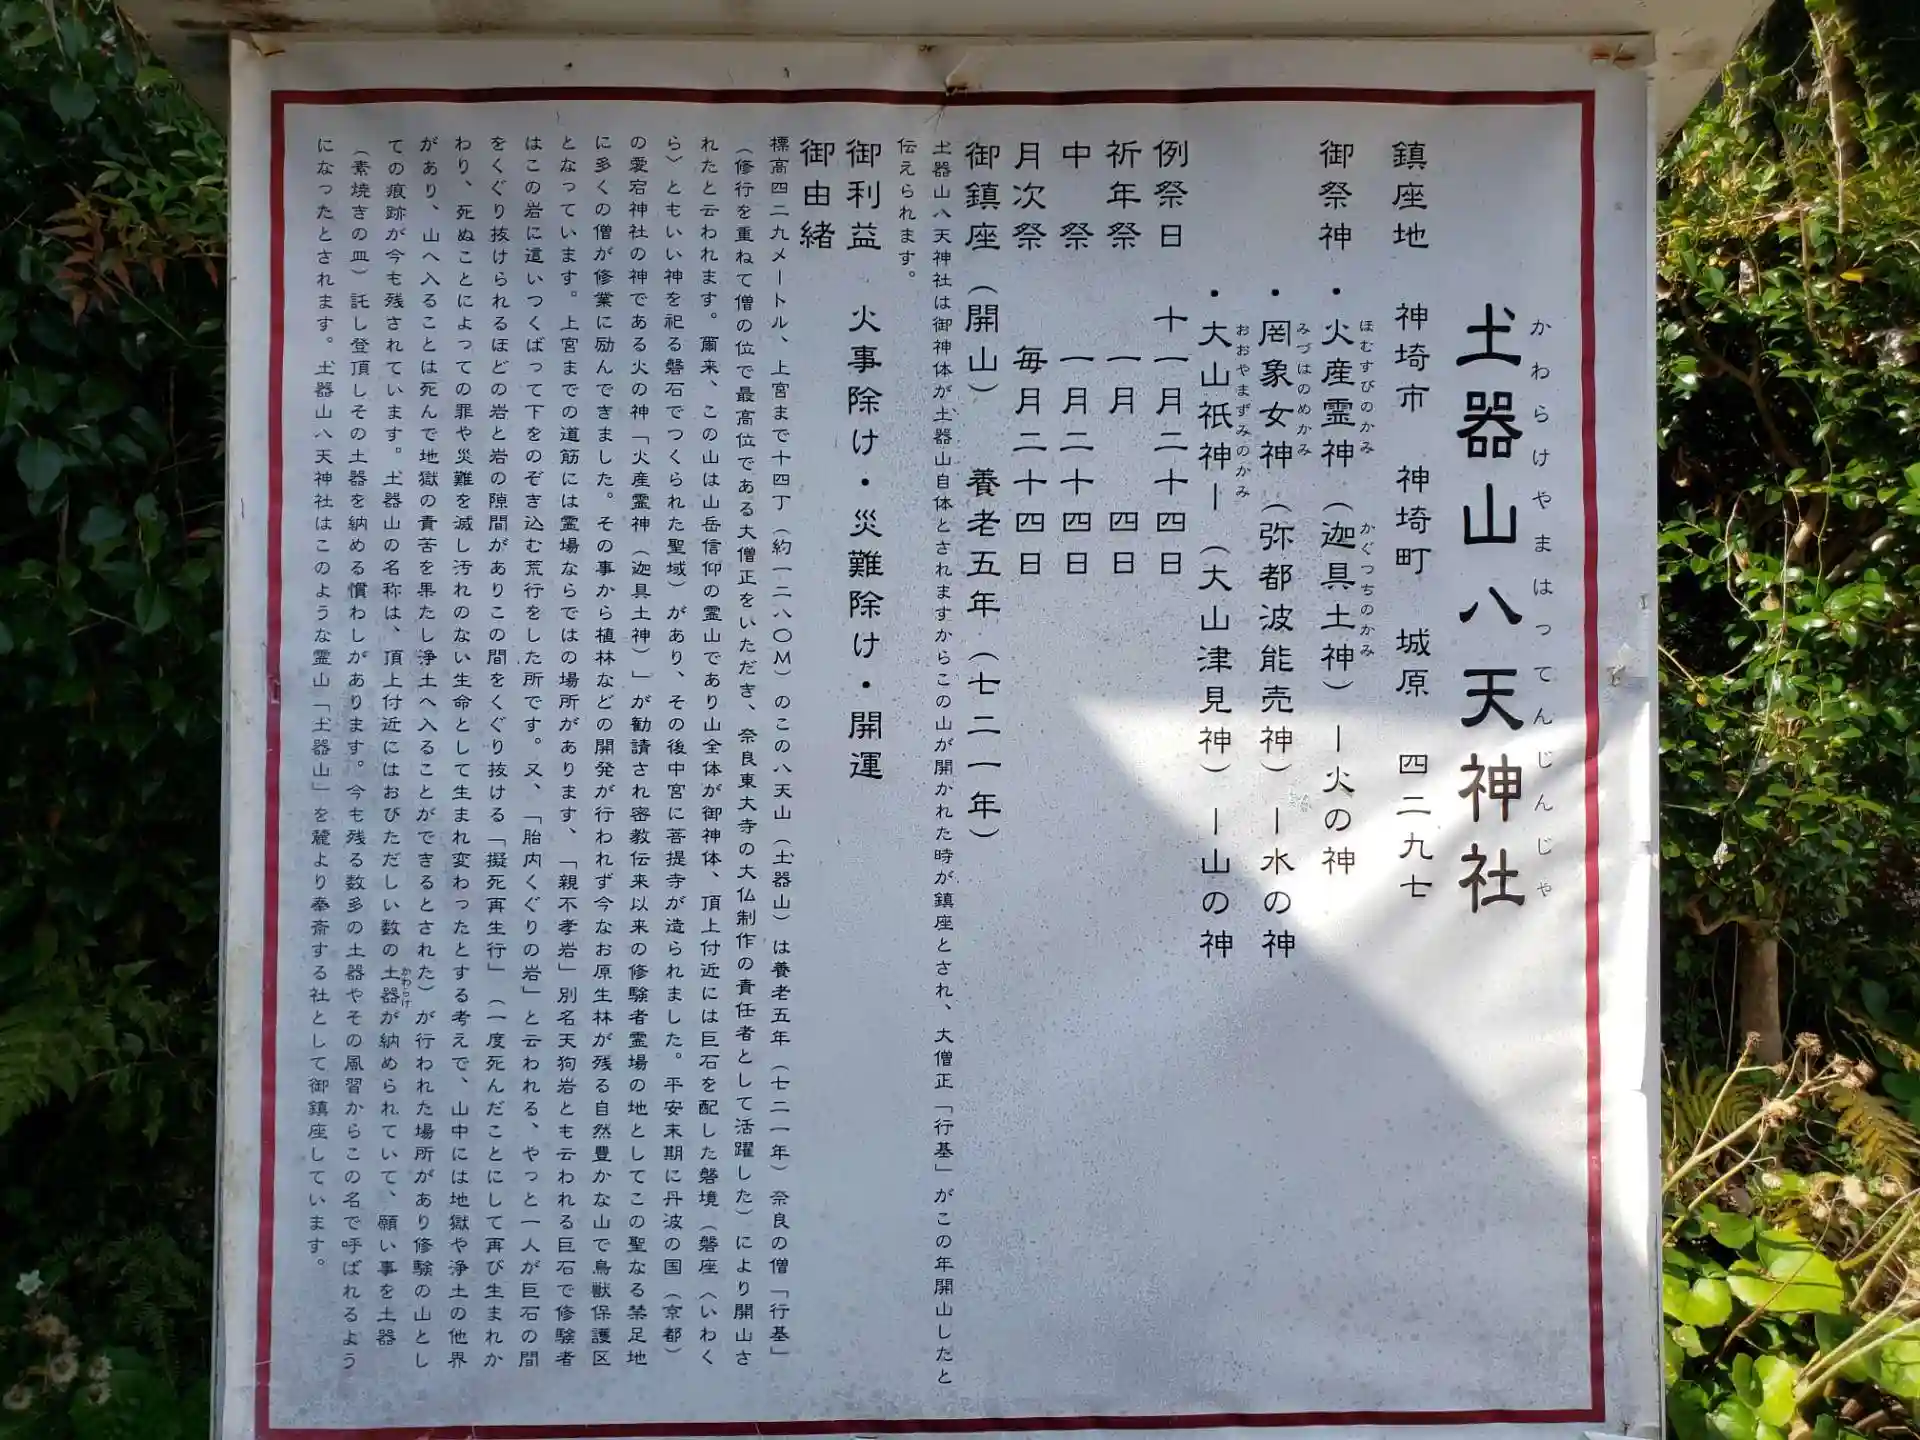 かわらけやまはってんじんじゃ
土器山八天神社
鎮座地 神埼市 神埼町 城原 四二九七
ほむすびのかみ かぐつちのかみ
御祭神 ・火産霊神（迦具土神）ー火の神
みづはのめかみ
・罔象女神（弥都波能売神）ー水の神
おおやまずみのかみ
・大山祇神ー（大山津見神）ー山の神
例祭日 十一月二十四日
祈年祭 一月 四日
中 祭 一月二十四日
月次祭 毎月二十四日
御鎮座（開山） 養老五年（七二一年）
土器山八天神社は御神体が土器山自体とされますからこの山が開かれた時が鎮座とされ、大僧正「行基」がこの年開山したと
伝えられます。
御利益 火事除け・災難除け・開運
御由緒
標高四二九メートル、上宮まで十四丁（約一二八〇M）のこの八天山（土器山）は養老五年（七二一年）奈良の僧「行基」
（修行を重ねて僧の位で最高位である大僧正をいただき、奈良東大寺の大仏制作の責任者として活躍した）により開山さ
れたと云われます。爾来、この山は山岳信仰の霊山であり山全体が御神体、頂上付近には巨石を配した磐境（磐座〈いわく
ら〉ともいい神を祀る磐石でつくられた聖域）があり、その後中宮に菩提寺が造られました。平安末期に丹波の国（京都）
の愛宕神社の神である火の神「火産霊神（迦具土神）」が勧請され密教伝来以来の修験者霊場の地としてこの聖なる禁足地
に多くの僧が修業に励んできました。その事から植林などの開発が行われず今なお原生林が残る自然豊かな山で鳥獣保護区
となっています。上宮までの道筋には霊場ならではの場所があります、「親不孝岩」別名天狗岩とも云われる巨石で修験者
はこの岩に這いつくばって下をのぞき込む荒行をした所です。又、「胎内くぐりの岩」と云われる、やっと一人が巨石の間
をくぐり抜けられるほどの岩と岩の隙間がありこの間をくぐり抜ける「擬死再生行」（一度死んだことにして再び生まれか
わり、死ぬことによっての罪や災難を滅し汚れのない生命として生まれ変わったとする考えで、山中には地獄や浄土の他界
があり、山へ入ることは死んで地獄の責苦を果たし浄土へ入ることができるとされた）が行われた場所があり修験の山とし
かわらけ
ての痕跡が今も残されています。土器山の名称は、頂上付近にはおびただしい数の土器が納められていて、願い事を土器
（素焼きの皿）託し登頂しその土器を納める慣わしがあります。今も残る数多の土器やその風習からこの名で呼ばれるよう
になったとされます。土器山八天神社はこのような霊山「土器山」を麓より奉斎する社として御鎮座しています。